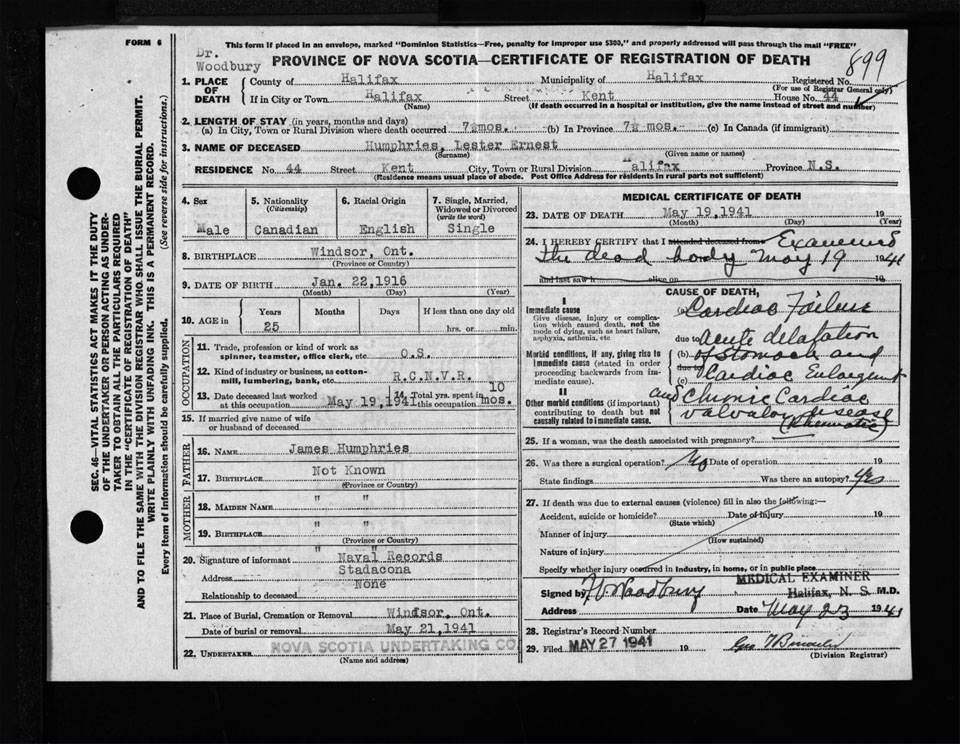 FORM 6
This form if placed in an envelope, marked "Dominion Statistics—Free, penalty for improper use $300," and properly addressed will pass through the mail "FREE"
Dr. Woodbury
PROVINCE OF NOVA SCOTIA—CERTIFICATE OF REGISTRATION OF DEATH
899
1. PLACE OF DEATH
County of Halifax Municipality of Halifax Registered No.
(For use of Registrar General only)
If in City or Town Halifax Street Kent House No. 44
(Name) (If death occurred in a hospital or institution, give the name instead of street and number)
2. LENGTH OF STAY (in years, months and days)
(a) In City, Town or Rural Division where death occurred 7½mos. (b) In Province 7½ mos. (c) In Canada (if immigrant)
3. NAME OF DECEASED Humphries, Lester Ernest
(Surname) (Given name or names)
RESIDENCE No. 44 Street Kent City, Town or Rural Division Halifax Province N.S.
(Residence means usual place of abode. Post Office Address for residents in rural parts not sufficient)
SEC. 46—VITAL STATISTICS ACT MAKES IT THE DUTY
OF THE UNDERTAKER OR PERSON ACTING AS UNDER-
TAKER TO OBTAIN ALL THE PARTICULARS REQUIRED
IN THE "CERTIFICATE OF REGISTRATION OF DEATH"
AND TO FILE THE SAME WITH THE DIVISION REGISTRAR WHO SHALL ISSUE THE BURIAL PERMIT.
WRITE PLAINLY WITH UNFADING INK. THIS IS A PERMANENT RECORD.
Every item of information should be carefully supplied. (See reverse side for instructions.)
4. Sex Male
5. Nationality (Citizenship) Canadian
6. Racial Origin English
7. Single, Married, Widowed or Divorced (write the word) Single
8. BIRTHPLACE Windsor, Ont.
(Province or Country)
9. DATE OF BIRTH Jan. 22,1916
(Month) (Day) (Year)
10. AGE in Years Months Days If less than one day old
25 hrs. or min.
OCCUPATION
11. Trade, profession or kind of work as spinner, teamster, office clerk, etc. O.S.
12. Kind of industry or business, as cotton-mill, lumbering, bank, etc. R.C.N.V.R.
13. Date deceased last worked at this occupation May 19,1941
14. Total yrs. spent in this occupation 10 mos.
15. If married give name of wife or husband of deceased
FATHER
16. NAME James Humphries
17. BIRTHPLACE Not Known
(Province or Country)
MOTHER
18. MAIDEN NAME " "
19. BIRTHPLACE " "
(Province or Country)
20. Signature of informant " Naval Records "
Address Stadacona
Relationship to deceased None
21. Place of Burial, Cremation or Removal Windsor, Ont.
Date of burial or removal May 21,1941
22. UNDERTAKER NOVA SCOTIA UNDERTAKING CO
(Name and address)
MEDICAL CERTIFICATE OF DEATH
23. DATE OF DEATH May 19,1941 19
(Month) (Day) (Year)
24. I HEREBY CERTIFY that I attended deceased from Examined
the dead body May 19 1941
and last saw h alive on 19
CAUSE OF DEATH,
I
Immediate cause
Give disease, injury or complication which caused death, not the mode of dying, such as heart failure, asphyxia, asthenia, etc
(a) Cardiac Failure
due to acute dilatation
Morbid conditions, if any, giving rise to immediate cause (stated in order proceeding backwards from immediate cause).
(b) of stomach and
due to
(c) Cardiac Enlargement
II
Other morbid conditions (if important) contributing to death but not causally related to immediate cause.
and Chronic Cardiac
valvular disease
(Rheumatic)
25. If a woman, was the death associated with pregnancy?
26. Was there a surgical operation? No Date of operation 19
State findings Was there an autopsy? Yes
27. If death was due to external causes (violence) fill in also the following:—
Accident, suicide or homicide? Date of injury 19
(State which)
Manner of injury
(How sustained)
Nature of injury
Specify whether injury occurred in industry, in home, or in public place
Signed by Woodbury MEDICAL EXAMINER Halifax, N. S. M.D.
Address Date May 23 1941
28. Registrar's Record Number
29. Filed MAY 27 1941 19
(Division Registrar)